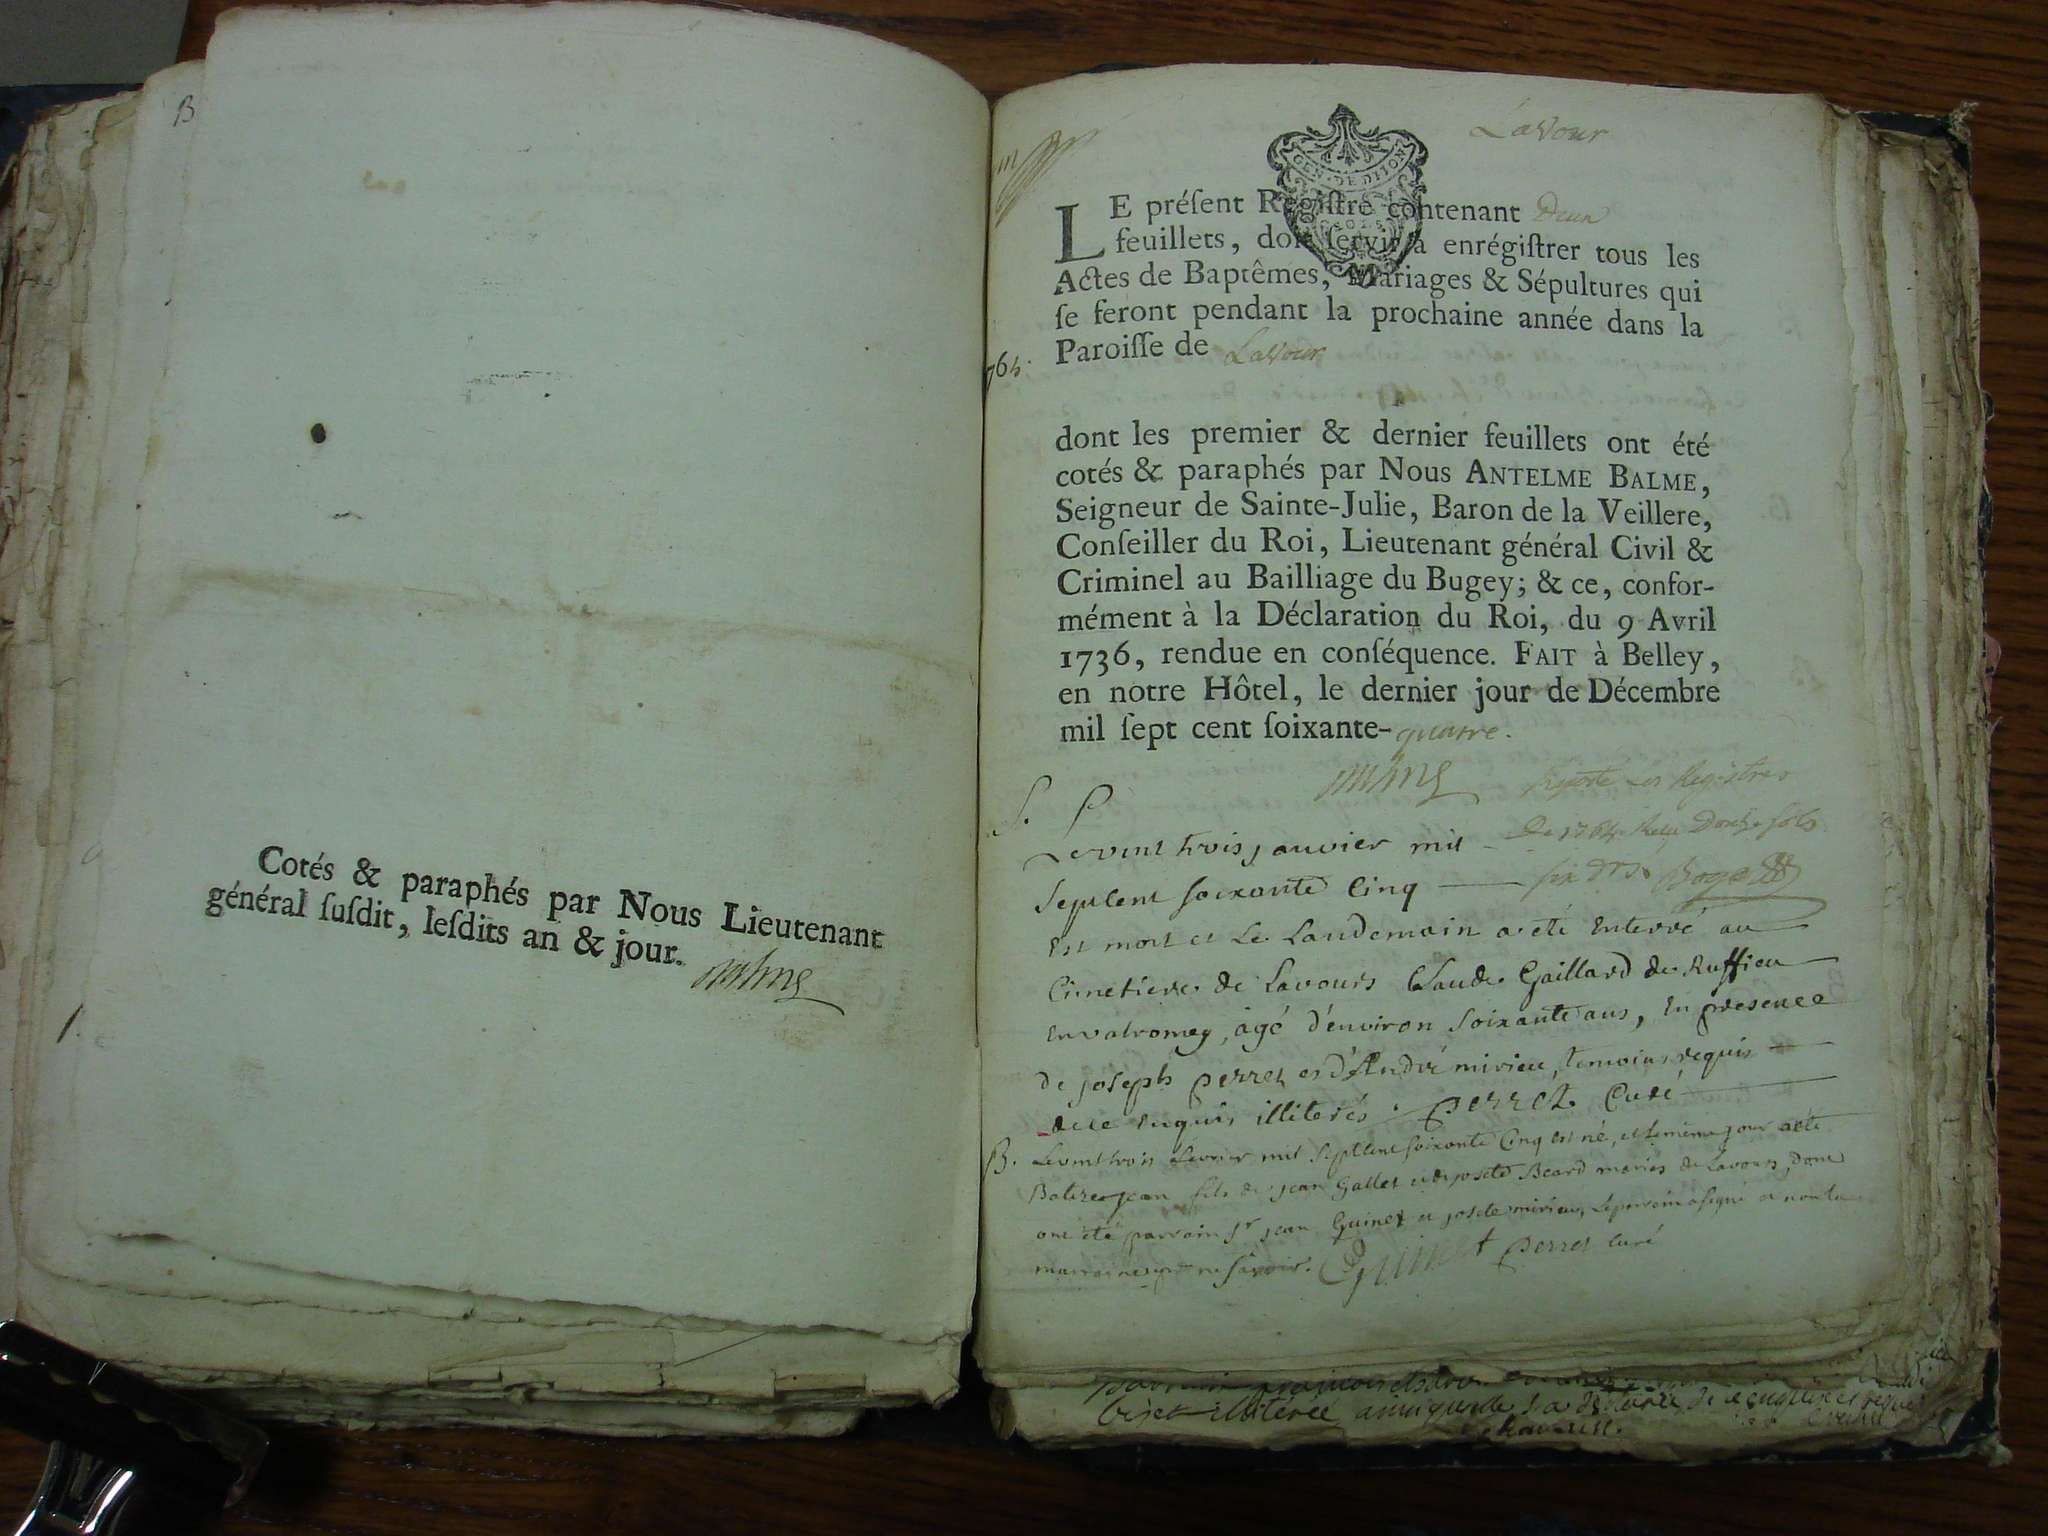 B
Cotés & paraphés par Nous Lieutenant
général ſuſdit, leſdits an & jour.
1.
Lavour
GEN. DE DIJON
LE préſent Regiſtre contenant Deux
feuillets, doit ſervir à enrégiſtrer tous les
Actes de Baptêmes, Mariages & Sépultures qui
ſe feront pendant la prochaine année dans la
Paroiſſe de Lavour
dont les premier & dernier feuillets ont été
cotés & paraphés par Nous ANTELME BALME,
Seigneur de Sainte-Julie, Baron de la Veillere,
Conſeiller du Roi, Lieutenant général Civil &
Criminel au Bailliage du Bugey; & ce, confor-
mément à la Déclaration du Roi, du 9 Avril
1736, rendue en conſéquence. FAIT à Belley,
en notre Hôtel, le dernier jour de Décembre
mil ſept cent ſoixante-quatre.
Les Registres
De 1764
S. Le vint trois janvier mil
septcent soixante Cinq
Est mort et Le Landemain a eté Enterré au
Cimetiere de Lavours Claude Gaillard de Ruffieu
En valromey, âgé d'environ soixante ans, En presence
de joseph perret et d'André mirieu, temoins requis
de ce Enquis illiterés. perret Curé
B. Le vint trois fevrier mil septcent soixante Cinq est né, et le même jour a été
Batizé jean fils de jean Gallet et de josete Beard mariés de Lavours, dont
ont été parrain sr jean Guinet et josete mirieu, Le parrain a signé et non la
marraine pour ne savoir. Guinet perret curé